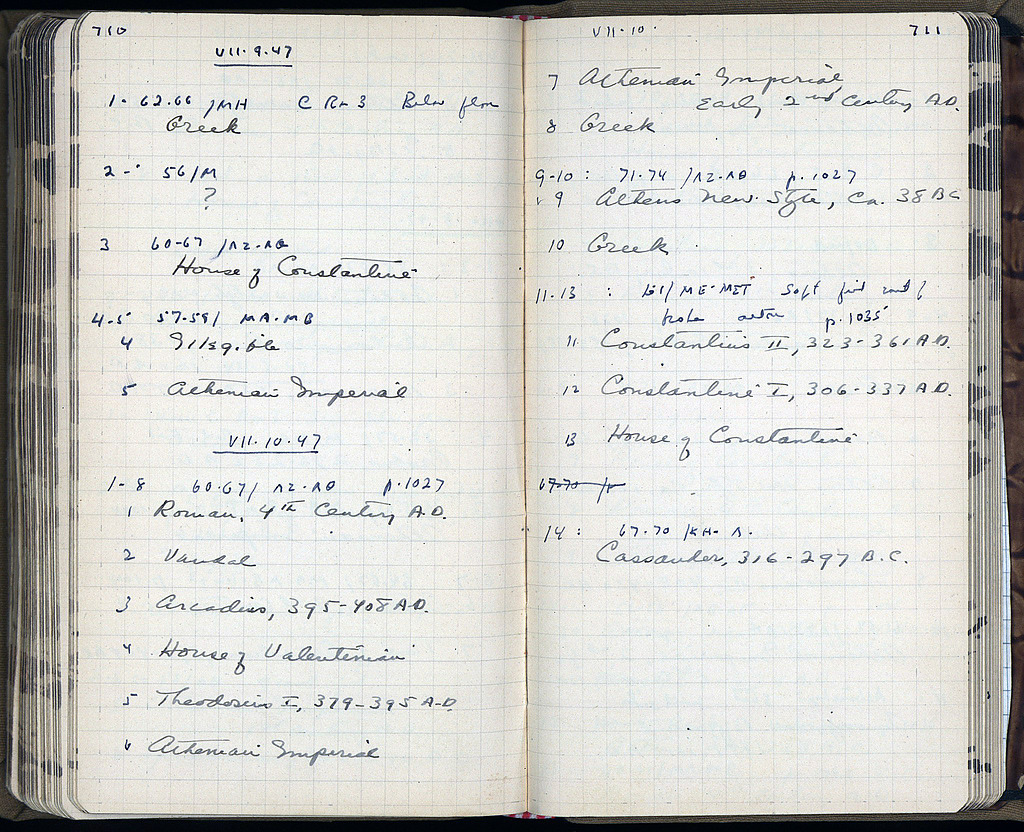 710
VII.9.47
1- 62.66 /MH C Rm 3 Below floor
Greek
2- 56/M
?
3 60-67 /ΛZ-ΛΘ
House of Constantine
4-5 57-59/ MA-MB
4 Illegible
5 Athenian Imperial
VII.10.47
1-8 60.67/ ΛZ-ΛΘ p.1027
1 Roman, 4th Century A.D.
2 Vandal
3 Arcadius, 395-408 A.D.
4 House of Valentinian
5 Theodosius I, 379-395 A.D.
6 Athenian Imperial
VII-10. 711
7 Athenian Imperial
Early 2nd century A.D.
8 Greek
9-10 : 71-74 /ΛZ-ΛΘ p.1027
9 Athens New Style, Ca. 38 BC
10 Greek
11-13 : /ME-MET Soft
p.1035
11 Constantius II, 323-361 A.D.
12 Constantine I, 306-337 A.D.
13 House of Constantine
67-70
14 : 67.70 /KH- Λ.
Cassander, 316-297 B.C.